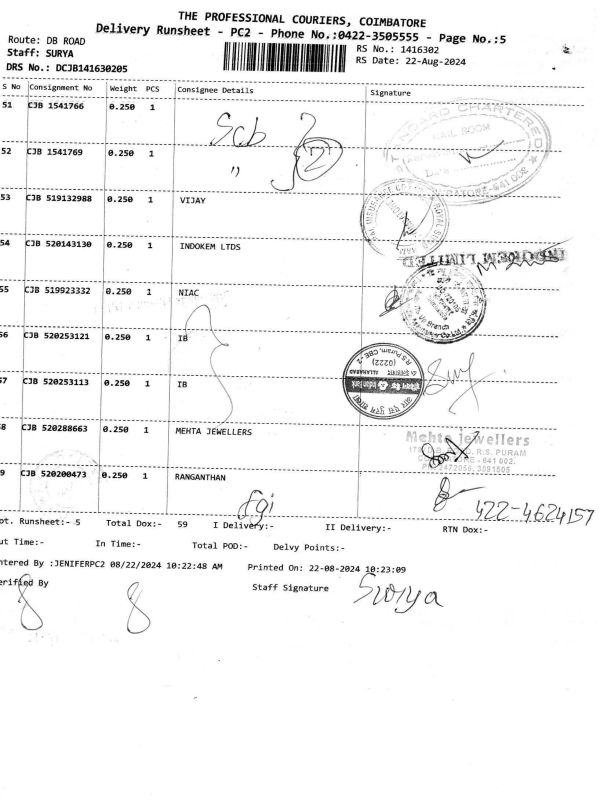 THE PROFESSIONAL COURIERS, COIMBATORE
Delivery Runsheet - PC2 - Phone No.:0422-3505555 - Page No.:5
Route: DB ROAD
RS No.: 1416302
Staff: SURYA
RS Date: 22-Aug-2024
DRS No.: DCJB141630205
S No Consignment No Weight PCS Consignee Details Signature
51 CJB 1541766 0.250 1 Scb
52 CJB 1541769 0.250 1 " 2
STANDARD CHARTERED
MAIL ROOM
641 002
53 CJB 519132988 0.250 1 VIJAY
54 CJB 520143130 0.250 1 INDOKEM LTDS
INDOKEM LIMITED
55 CJB 519923332 0.250 1 NIAC
56 CJB 520253121 0.250 1 IB
R S Puram, CBE-2
(0222)
ALLAHABAD
57 CJB 520253113 0.250 1 IB
58 CJB 520288663 0.250 1 MEHTA JEWELLERS
Mehta Jewellers
R.S. PURAM
641 002.
59 CJB 520200473 0.250 1 RANGANTHAN
422-4624157
Tot. Runsheet:- 5 Total Dox:- 59 I Delivery:- II Delivery:- RTN Dox:-
Out Time:- In Time:- Total POD:- Delvy Points:-
Entered By :JENIFERPC2 08/22/2024 10:22:48 AM Printed On: 22-08-2024 10:23:09
Verified By Staff Signature Surya